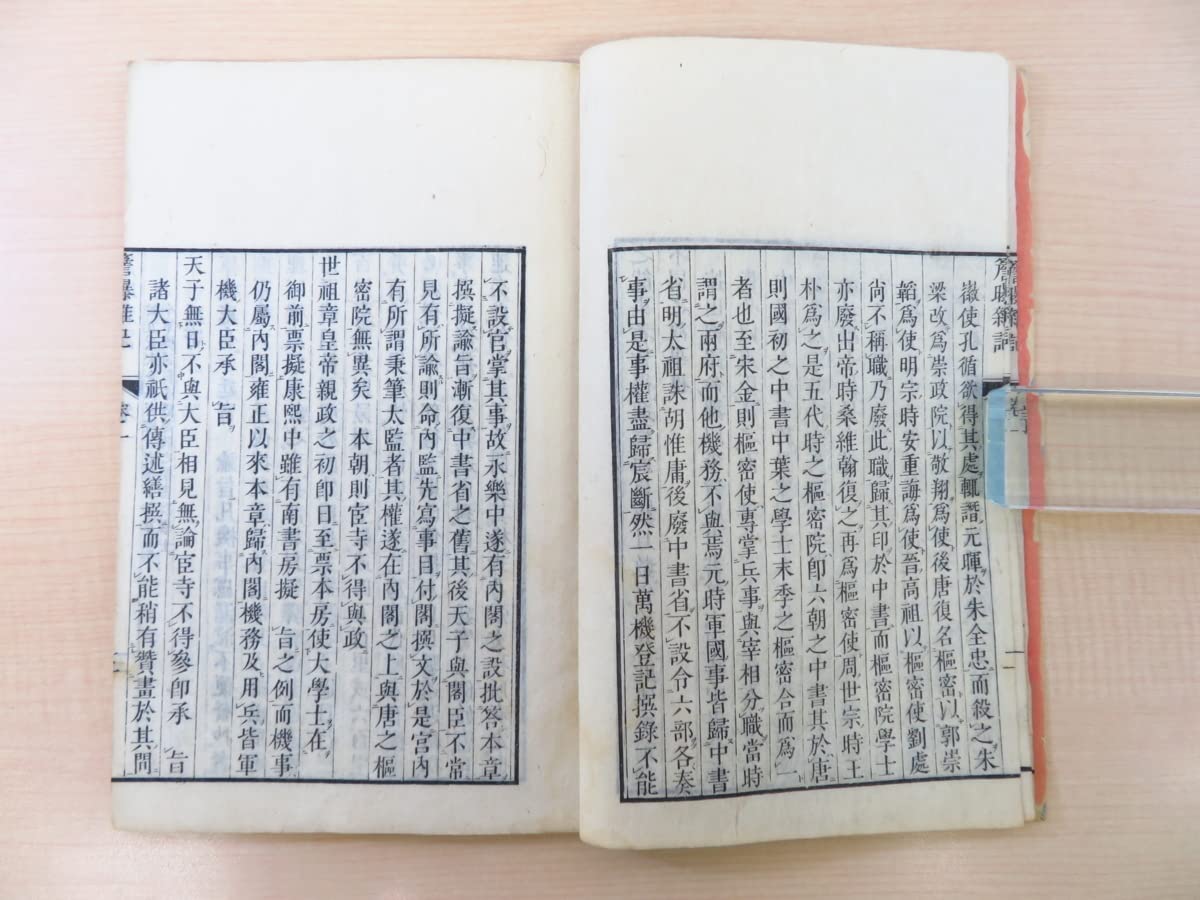 簷曝雜記
徽使孔循欲得其處輒譖元暉於朱全忠而殺之朱
梁改爲崇政院以敬翔爲使後唐復名樞密以郭崇
韜爲使明宗時安重誨爲使晉高祖以樞密使劉處
尚不稱職乃廢此職歸其印於中書而樞密院學士
亦廢出帝時桑維翰復之再爲樞密使周世宗時王
朴爲之是五代時之樞密院卽六朝之中書其於唐
則國初之中書中葉之學士末季之樞密合而爲一
者也至宋金則樞密使專掌兵事與宰相分職當時
謂之兩府而他機務不與焉元時軍國事皆歸中書
省明太祖誅胡惟庸後廢中書省不設令六部各奏
事由是事權盡歸宸斷然一日萬機登記撰錄不能
不設官掌其事故永樂中遂有內閣之設批答本章
撰擬諭旨漸復中書省之舊其後天子與閣臣不常
見有所諭則命內監先寫事目付閣撰文於是宮內
有所謂秉筆太監者其權遂在內閣之上與唐之樞
密院無異矣 本朝則宦寺不得與政
世祖章皇帝親政之初卽日至票本房使大學士在
御前票擬康熙中雖有南書房擬 旨之例而機事
仍屬內閣雍正以來本章歸內閣機務及用兵皆軍
機大臣承 旨
天子無日不與大臣相見無論宦寺不得參卽承 旨
諸大臣亦祇供傳述繕撰而不能稍有贊畫於其間